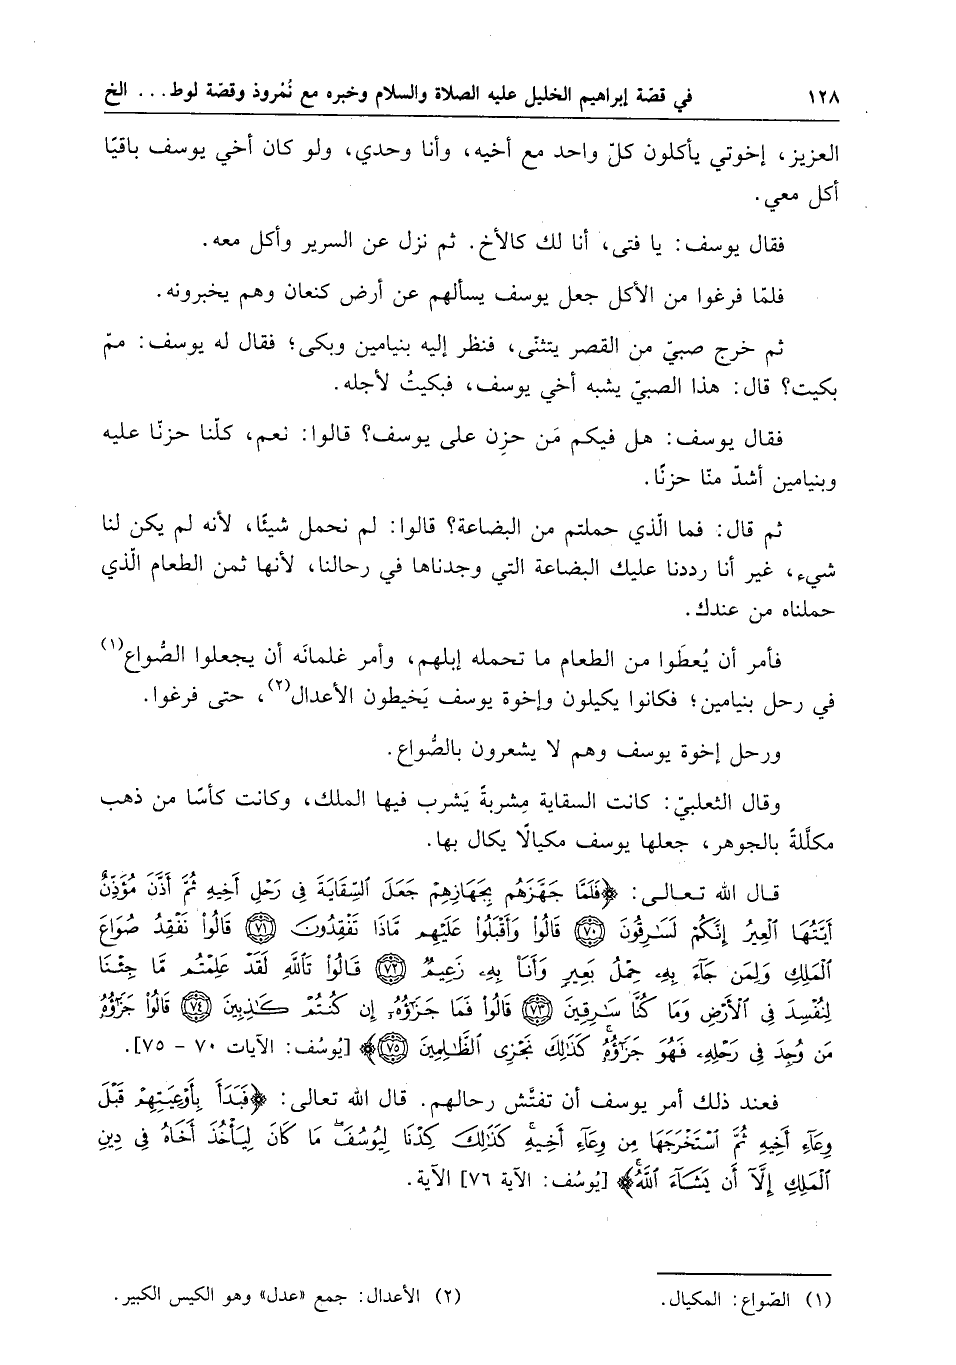 ١٢٨ في قصّة إبراهيم الخليل عليه الصلاة والسلام وخبره مع نُمْروذ وقصّة لوط... الخ
العزيز، إخوتي يأكلون كلّ واحد مع أخيه، وأنا وحدي، ولو كان أخي يوسف باقيًا
أكل معي.
فقال يوسف: يا فتى، أنا لك كالأخ. ثم نزل عن السرير وأكل معه.
فلمّا فرغوا من الأكل جعل يوسف يسألهم عن أرض كنعان وهم يخبرونه.
ثم خرج صبيّ من القصر يتثنّى، فنظر إليه بنيامين وبكى؛ فقال له يوسف: ممّ
بكيت؟ قال: هذا الصبيّ يشبه أخي يوسف، فبكيتُ لأجله.
فقال يوسف: هل فيكم مَن حزِن على يوسف؟ قالوا: نعم، كلّنا حزنّا عليه
وبنيامين أشدّ منّا حزنًا.
ثم قال: فما الّذي حملتم من البضاعة؟ قالوا: لم نحمل شيئًا، لأنه لم يكن لنا
شيء، غير أنا رددنا عليك البضاعة التي وجدناها في رحالنا، لأنها ثمن الطعام الّذي
حملناه من عندك.
فأمر أن يُعطَوا من الطعام ما تحمله إبلهم، وأمر غلمانَه أن يجعلوا الصُّواع(١)
في رحل بنيامين؛ فكانوا يكيلون وإخوة يوسف يَخيطون الأعدال(٢)، حتى فرغوا.
ورحل إخوة يوسف وهم لا يشعرون بالصُّواع.
وقال الثعلبيّ: كانت السقاية مِشربةً يَشرب فيها الملك، وكانت كأسًا من ذهب
مكلَّلةً بالجوهر، جعلها يوسف مكيالًا يكال بها.
قال الله تعالى: ﴿فَلَمَّا جَهَّزَهُم بِجَهَازِهِمْ جَعَلَ ٱلسِّقَايَةَ فِى رَحْلِ أَخِيهِ ثُمَّ أَذَّنَ مُؤَذِّنٌ
أَيَّتُهَا ٱلْعِيرُ إِنَّكُمْ لَسَٰرِقُونَ ۝٧٠ قَالُوا۟ وَأَقْبَلُوا۟ عَلَيْهِم مَّاذَا تَفْقِدُونَ ۝٧١ قَالُوا۟ نَفْقِدُ صُوَاعَ
ٱلْمَلِكِ وَلِمَن جَآءَ بِهِۦ حِمْلُ بَعِيرٍ وَأَنَا۠ بِهِۦ زَعِيمٌ ۝٧٢ قَالُوا۟ تَٱللَّهِ لَقَدْ عَلِمْتُم مَّا جِئْنَا
لِنُفْسِدَ فِى ٱلْأَرْضِ وَمَا كُنَّا سَٰرِقِينَ ۝٧٣ قَالُوا۟ فَمَا جَزَٰٓؤُهُۥٓ إِن كُنتُمْ كَٰذِبِينَ ۝٧٤ قَالُوا۟ جَزَٰٓؤُهُۥ
مَن وُجِدَ فِى رَحْلِهِۦ فَهُوَ جَزَٰٓؤُهُۥ ۚ كَذَٰلِكَ نَجْزِى ٱلظَّٰلِمِينَ ۝٧٥﴾ [يُوسُف: الآيات ٧٠ - ٧٥].
فعند ذلك أمر يوسف أن تفتَّش رحالهم. قال الله تعالى: ﴿فَبَدَأَ بِأَوْعِيَتِهِمْ قَبْلَ
وِعَآءِ أَخِيهِ ثُمَّ ٱسْتَخْرَجَهَا مِن وِعَآءِ أَخِيهِ ۚ كَذَٰلِكَ كِدْنَا لِيُوسُفَ ۖ مَا كَانَ لِيَأْخُذَ أَخَاهُ فِى دِينِ
ٱلْمَلِكِ إِلَّآ أَن يَشَآءَ ٱللَّهُ ۚ﴾ [يُوسُف: الآية ٧٦] الآية.
(١) الصّواع: المكيال. (٢) الأعدال: جمع «عدل» وهو الكيس الكبير.